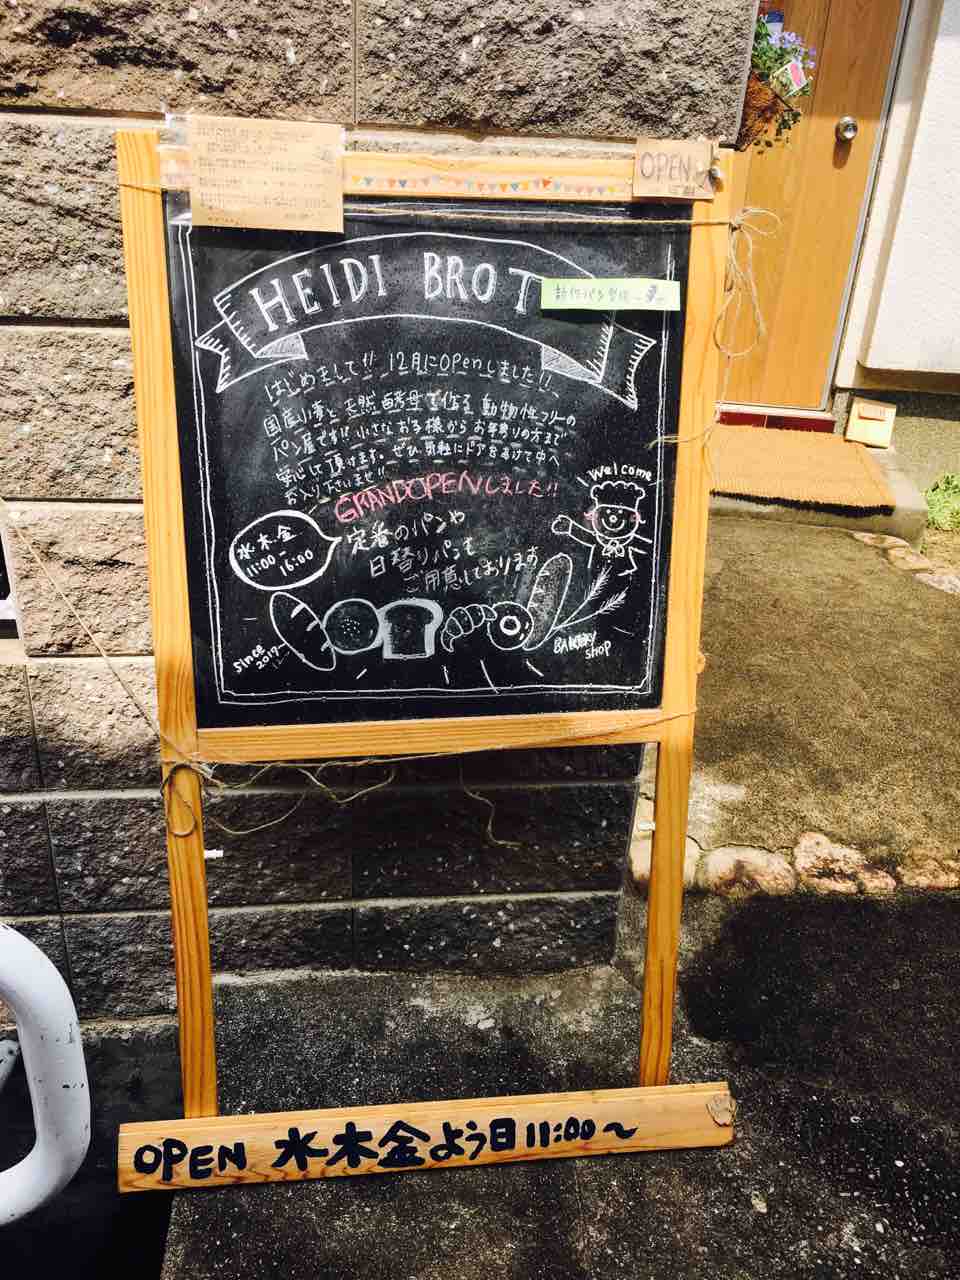 OPEN
HEIDI BROT
はじめまして!! 12月にOPenしました!!
国産小麦と天然酵母で作る 動物性フリーの
パン屋です!! 小さなお子様からお年寄りの方まで
安心して頂けます。ぜひ気軽にドアを開けて中へ
お入り下さいませ!!
GRANDOPENしました!!
Welcome
水木金
11:00
-
16:00
定番のパンや
日替りパンを
ご用意しております
since
2017
BAKERY
SHOP
OPEN 水木金よう日11:00～